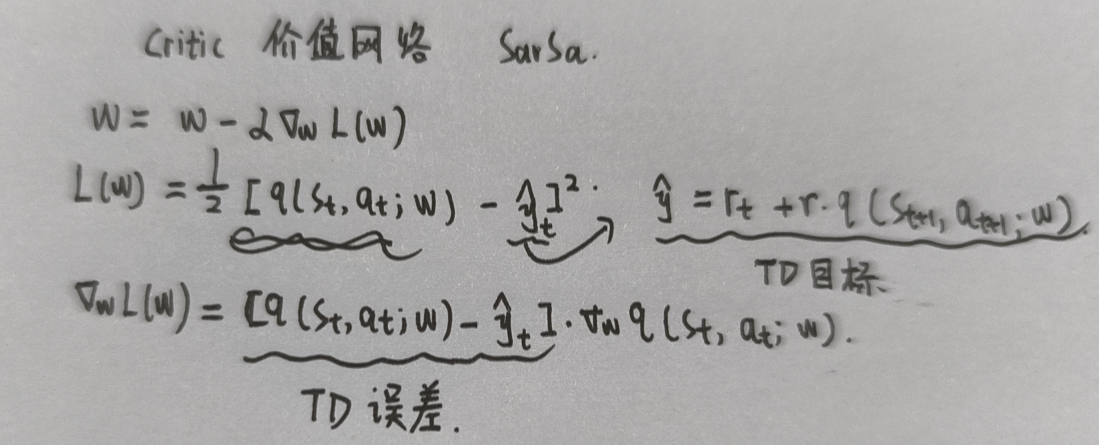 Critic 价值网络 SarSa.
w = w - α ∇w L(w)
L(w) = 1/2 [q(st, at; w) - ŷt]². ŷ = rt + r · q(st+1, at+1; w).
TD 目标
∇w L(w) = [q(st, at; w) - ŷt] · ∇w q(st, at; w).
TD 误差.